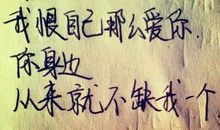 我恨自己那么爱你.
你身边
从来就不缺我一个